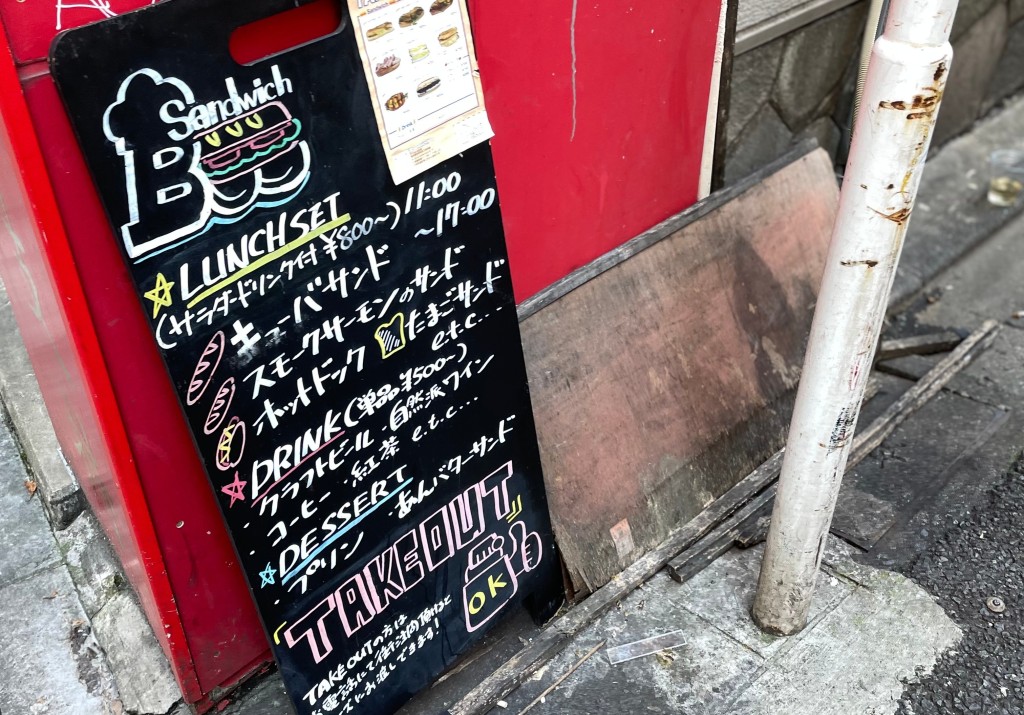 Sandwich
B
☆ LUNCH SET 11:00
(サラダ・ドリンク付 ¥800~) ~17:00
キューバサンド
スモークサーモンのサンド
ホットドック たまごサンド
e.t.c...
☆ DRINK (単品¥500~)
・クラフトビール ・自然派ワイン
・コーヒー ・紅茶 e.t.c...
☆ DESSERT
・プリン ・あんバターサンド
TAKEOUT
OK
TAKE OUTの方は
お電話にて 注文頂けると
お渡しできます!